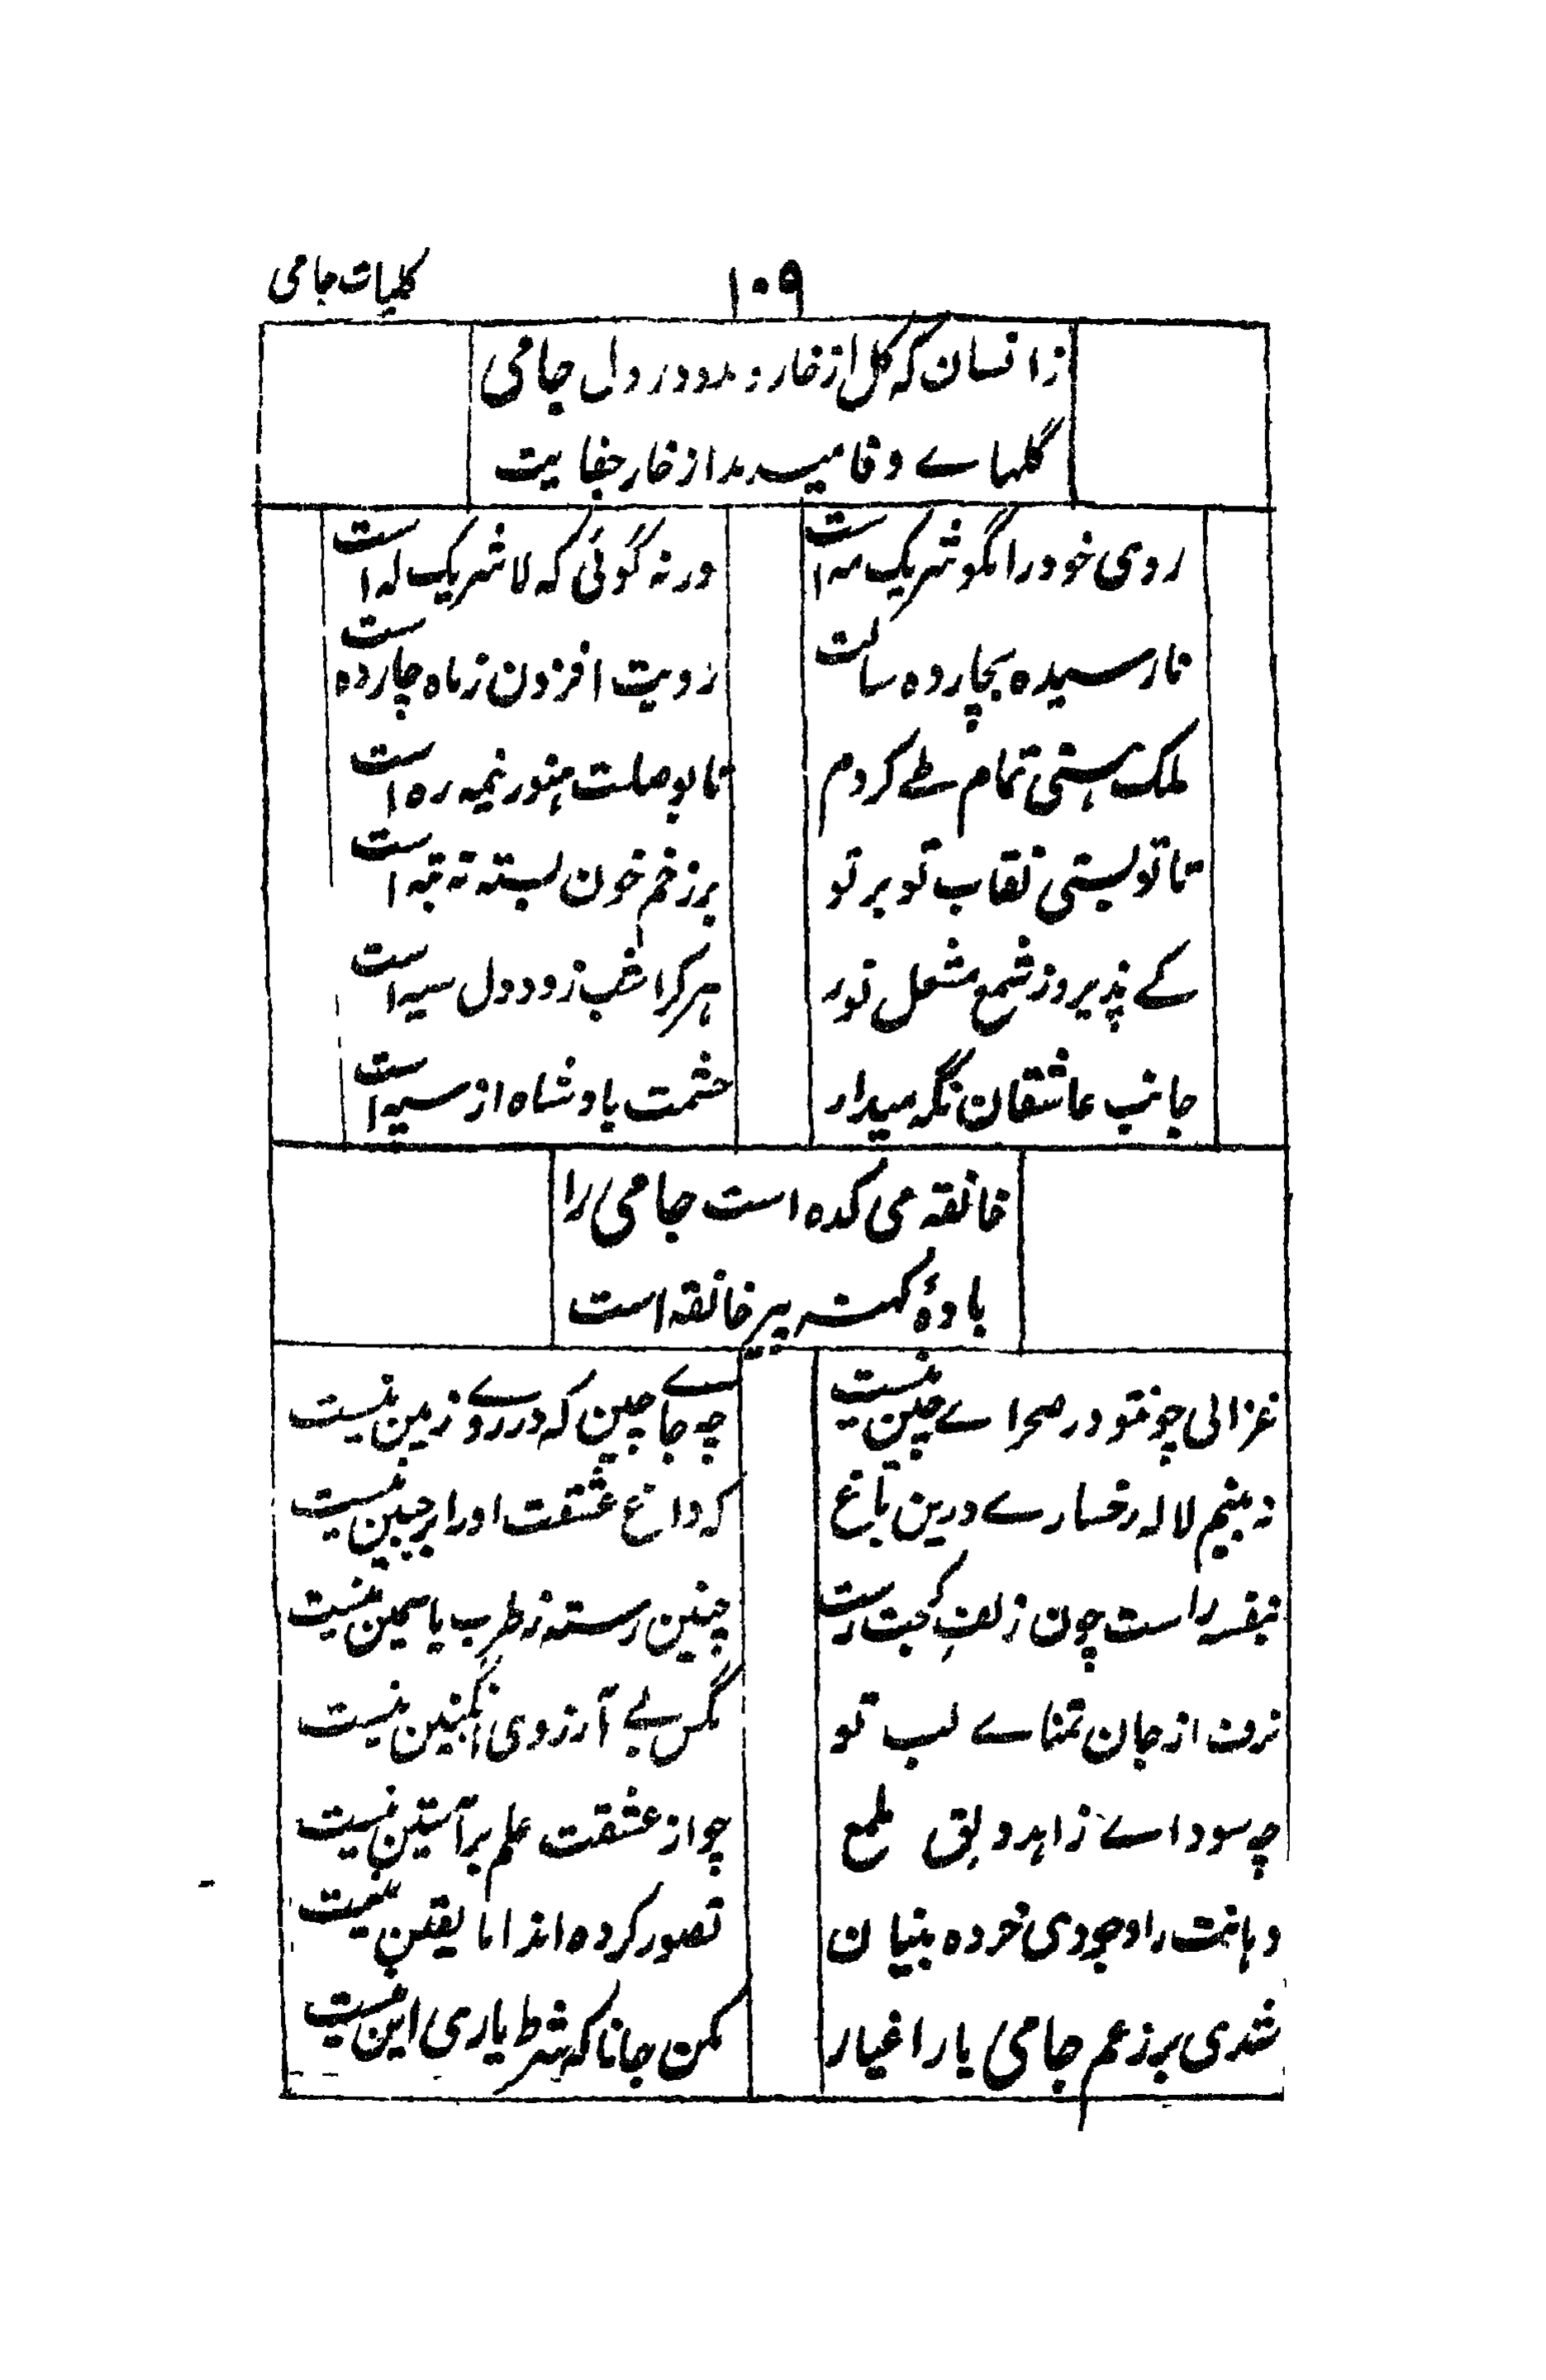 ۱۰۹ کلیات جامی
زانسان که گل از خار دمد در دل جامی
گلهاے وفا میدمد از خار جفایت
روی خود را مگو شریک مه است ورنه گوئی که لا شریک له است
نارسیده بچارده سالت رویت افزون ز ماه چارده ست
ملک هستی تمام طے کردم تا بوصلت هنوز نیمه ره است
تا تو بستی نقاب تو بر تو بر زخم خون بسته ته بته است
کے پذیرد ز شمع مشعل نور هر کرا شب ز دود دل سیه است
جانب عاشقان نگه میدار حشمت پادشاه از سپه است
خانقه می کده است جامی را
بادهٔ کهنه پیر خانقه است
غزالی چونتو در صحراے چین نیست چه جاے چین که در روے زمین نیست
نه بینم لاله رخسارے درین باغ که داغ عشقت او را بر جبین نیست
بنفشه راست چون زلف کجت رست چنین رسته ز طرب یاسمین نیست
نرفت از جان تمناے لب تو مگس بے آرزوی انگبین نیست
چه سود اے زاهد دلق ملمع چو از عشقت علم بر آستین نیست
دهانت را وجودی خرده بینان تصور کرده اند اما یقین نیست
شدی بر زعم جامی یار اغیار مکن جانا که شرط یاری این نیست